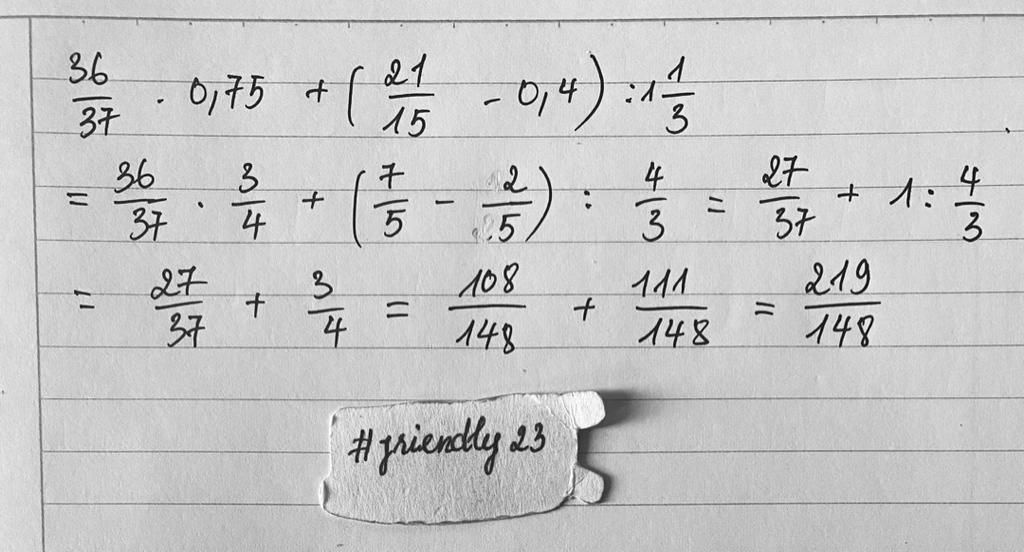 36/37 · 0,75 + (21/15 - 0,4) : 1 1/3
= 36/37 · 3/4 + (7/5 - 2/5) : 4/3 = 27/37 + 1 : 4/3
= 27/37 + 3/4 = 108/148 + 111/148 = 219/148
#friendly 23